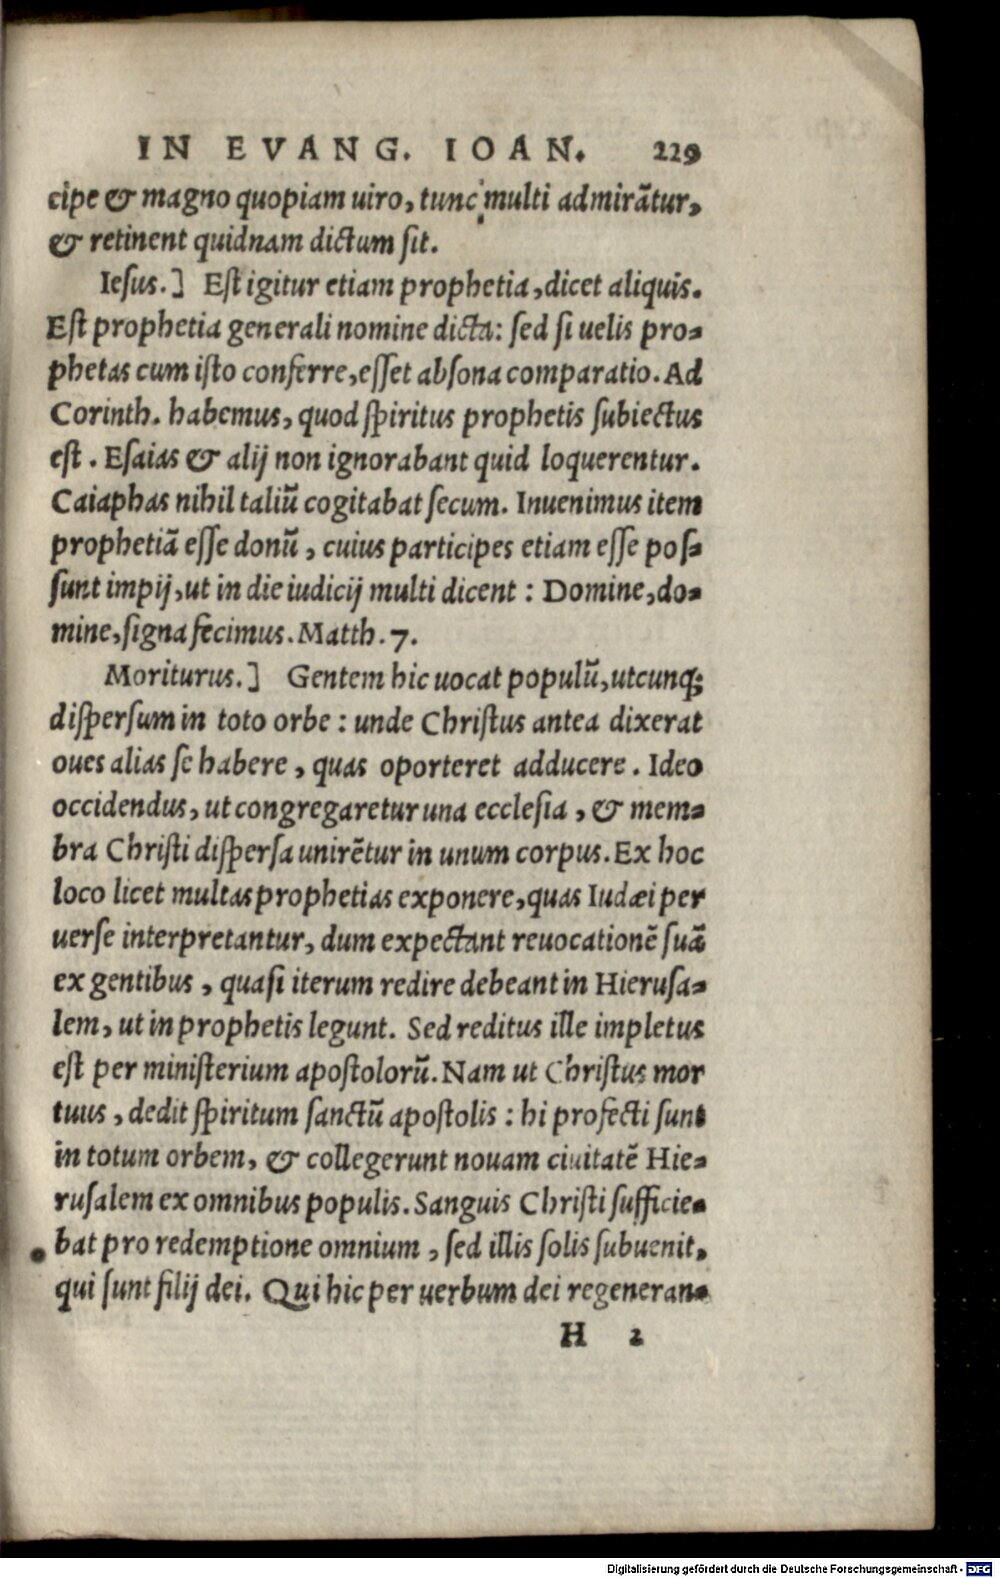 IN EVANG. IOAN. 229
cipe & magno quopiam uiro, tunc multi admirãtur,
& retinent quidnam dictum sit.
Iesus.] Est igitur etiam prophetia, dicet aliquis.
Est prophetia generali nomine dicta: sed si uelis pro-
phetas cum isto conferre, esset absona comparatio. Ad
Corinth. habemus, quod spiritus prophetis subiectus
est. Esaias & alij non ignorabant quid loquerentur.
Caiaphas nihil taliũ cogitabat secum. Inuenimus item
prophetiã esse donũ, cuius participes etiam esse pos-
sunt impij, ut in die iudicij multi dicent: Domine, do-
mine, signa fecimus. Matth. 7.
Moriturus.] Gentem hic uocat populũ, utcunq;
dispersum in toto orbe: unde Christus antea dixerat
oues alias se habere, quas oporteret adducere. Ideo
occidendus, ut congregaretur una ecclesia, & mem-
bra Christi dispersa unirẽtur in unum corpus. Ex hoc
loco licet multas prophetias exponere, quas Iudæi per
uerse interpretantur, dum expectant reuocationẽ suã
ex gentibus, quasi iterum redire debeant in Hierusa-
lem, ut in prophetis legunt. Sed reditus ille impletus
est per ministerium apostolorũ. Nam ut Christus mor
tuus, dedit spiritum sanctũ apostolis: hi profecti sunt
in totum orbem, & collegerunt nouam ciuitatẽ Hie-
rusalem ex omnibus populis. Sanguis Christi sufficie-
bat pro redemptione omnium, sed illis solis subuenit,
qui sunt filij dei. Qui hic per uerbum dei regeneran-
H 2
Digitalisierung gefördert durch die Deutsche Forschungsgemeinschaft - DFG